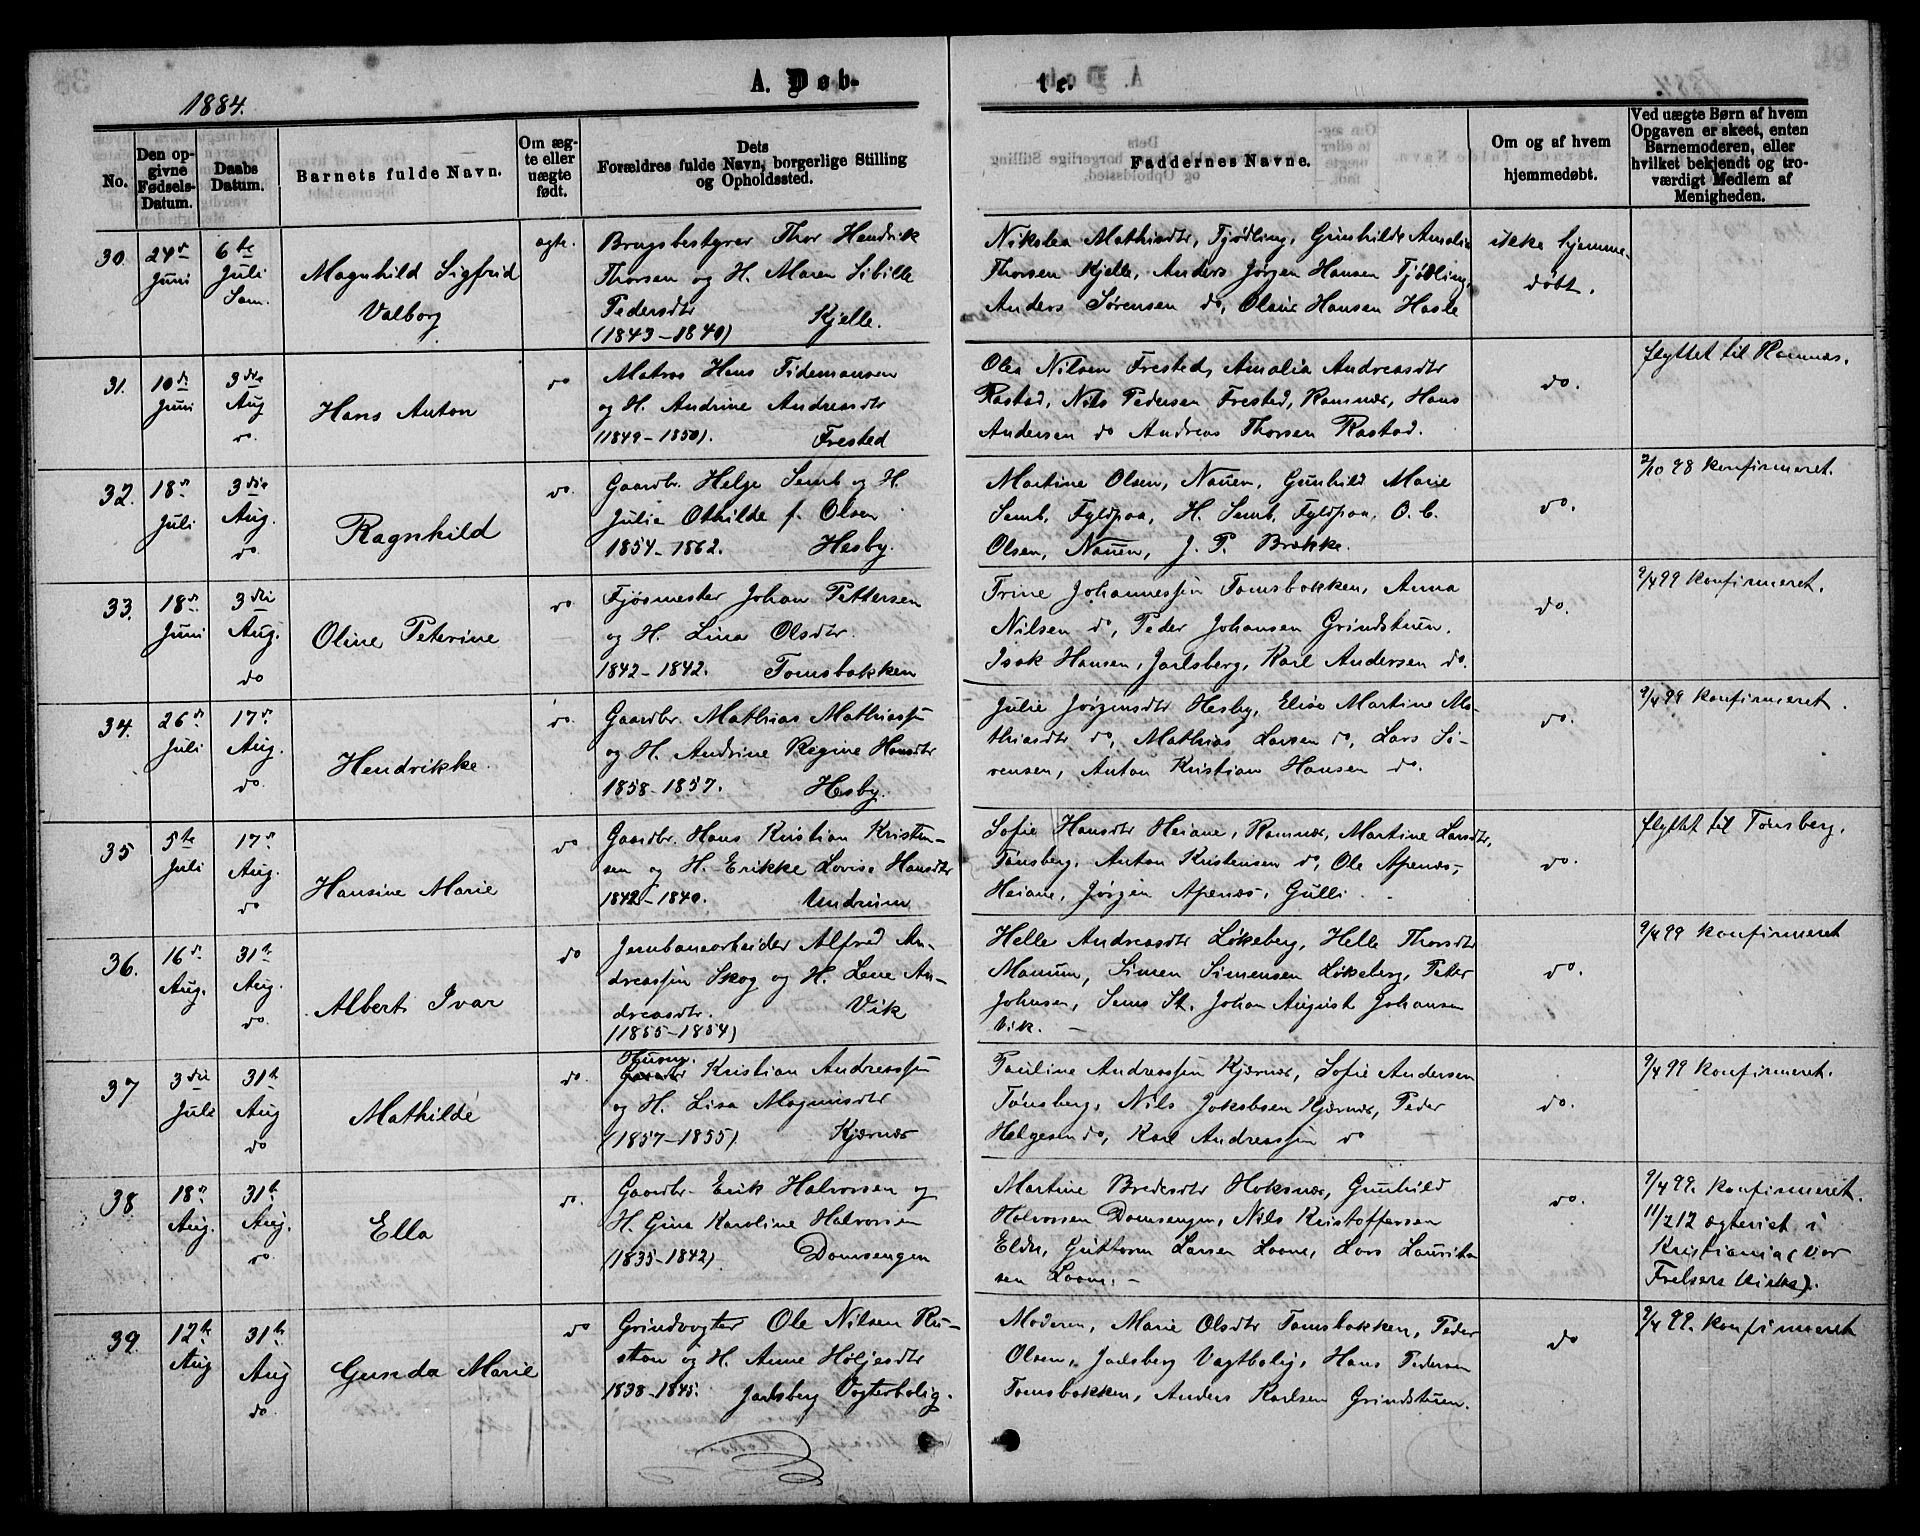 1884.
A. Døb-
te.
No.
Den op-
givne
Fødsels-
Datum.
Daabs
Datum.
Barnets fulde Navn.
Om æg-
te eller
uægte
født.
Dets
Forældres fulde Navn, borgerlige Stilling
og Opholdssted.
Faddernes Navne.
Om og af hvem
hjemmedøbt.
Ved uægte Børn af hvem
Opgaven er skeet, enten
Barnemoderen, eller
hvilket bekjendt og tro-
værdigt Medlem af
Menigheden.
30.
24de
Juni
6te
Juli
Sem.
Magnhild Sigfrid
Valborg
ægte.
Brugsbestyrer Thor Hendrik
Thorsen og H. Maren Sibille
Pedersdtr
(1843-1840) Kjelle.
Nikolea Mathisdtr, Tjødling, Gunhilde Amalia
Thorsen Kjelle, Anders Jørgen Hansen Tjødling,
Anders Sørensen do, Olaus Hansen Hasle
ikke hjemme-
døbt.
31.
10de
Juni
3die
Aug
do.
Hans Anton
do
Matros Hans Tidemansen
og H. Andrine Andreasdtr
(1849-1850). Frested
Olea Nilsen Frested, Amalia Andreasdtr
Rastad, Nils Pedersen Frested, Ramnæs, Hans
Andersen do Andreas Thorsen Rastad.
do.
flyttet til Ramnæs.
32.
18de
Juli
3die
Aug.
do.
Ragnhild
do.
Gaardbr. Helge Semb og H.
Julie Othilde f. Olsen
1854-1862. Hesby.
Martine Olsen, Nauen, Gunhild Marie
Semb, Fyldpaa, H. Semb, Fyldpaa, O. C.
Olsen, Nauen, J. P. Brække.
do.
2/10 98 konfirmeret.
33.
18de
Juni
3die
Aug.
do
Oline Peterine
do
Fjøsmester Johan Pettersen
og H. Lina Olsdtr.
1842-1842. Tomsbakken
Trine Johannessen Tomsbakken, Anna
Nilsen do, Peder Johansen Grindstuen.
Isak Hansen, Jarlsberg, Karl Andersen do.
do.
9/4 99 konfirmeret.
34.
26de
Juli
17de
Aug.
do
Hendrikke.
do.
Gaardbr. Mathias Mathiassen
og H. Andrine Regine Hansdtr
1858-1857. Hesby.
Julie Jørgensdtr Hesby, Elise Martine Ma-
thiasdtr do, Mathias Larsen do, Lars Sø-
rensen, Anton Kristian Hansen do.
do.
9/4 99 konfirmeret.
35
5te
Juli
17de
Aug.
do
Hansine Marie
do.
Gaardbr. Hans Kristian Kristen-
sen og H. Erikke Lovise Hansdtr
1842-1840. Undrum
Sofie Hansdtr Heiane, Ramnæs, Martine Larsdtr,
Tønsberg, Anton Kristensen do, Ole Apenæs,
Heiane, Jørgen Apenæs, Gulli.
do.
flyttet til Tønsberg.
36.
16de
Aug.
31te
Aug.
do.
Albert Ivar
do
Jernbanearbeider Alfred An-
dreassen Skog og H. Lene An-
dreasdtr. Vik
(1855-1854)
Helle Andreasdtr Løkeberg, Helle Thorsdtr
Manum, Simen Simensen Løkeberg, Peter
Johnsen, Sems St. Johan August Johansen
Vik.
do.
9/4 99 konfirmeret
37
3die
Juli
31te
Aug
do
Mathilde
do.
Husm.
Kristian Andreassen
og H. Lisa Magnusdtr
(1857-1855) Kjærnæs
Pauline Andreassen Kjærnæs, Sofie Andersen
Tønsberg, Nils Jakobsen Kjærnæs, Peder
Helgesen do, Karl Andreassen do
do.
9/4 99 konfirmeret.
38
18de
Aug.
31te
Aug.
do
Ella
do.
Gaardbr. Erik Halvorsen og
H. Gina Karoline Halvorsen
(1835-1842) Domsengen
Martine Bredesdtr Hoksnæs, Gunhild
Halvorsen Domsengen, Nils Kristoffersen
Elder, Guttorm Larsen Loone, Lars Laurits-
sen Loone.
do.
9/4 99. konfirmeret.
11/2 12 ægteviet i
Kristiania (Vor
Frelsers Kirke).
39.
12te
Aug
31te
Aug
do.
Gunda Marie
do
Grindvogter Ole Nilsen Ru-
stan og H. Anne Høljesdtr
1838-1845. Jarlsberg Vogterbolig.
Moderen, Marie Olsdtr Tomsbakken, Peder
Olsen, Jarlsberg Vagtbolig, Hans Pedersen
Tomsbakken, Anders Karlsen Grindstuen.
do
9/4 99. konfirmeret